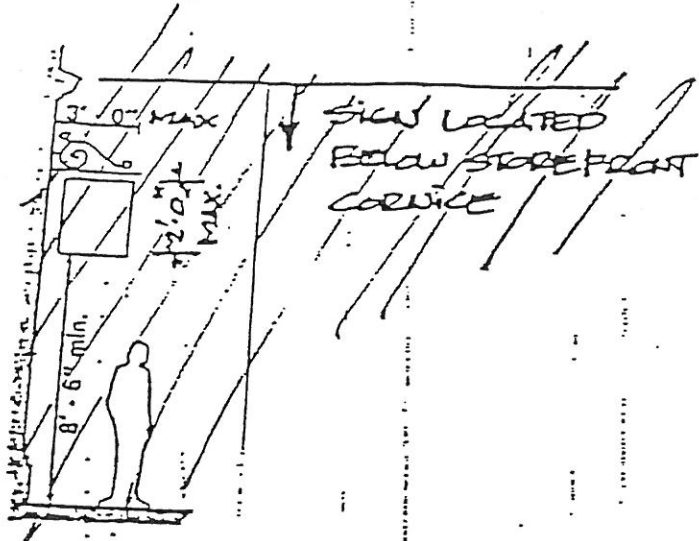 3'  0" MAX
SIGN LOCATED
BELOW STOREFRONT
CORNICE
2'.0"
MAX.
8' - 6" min.